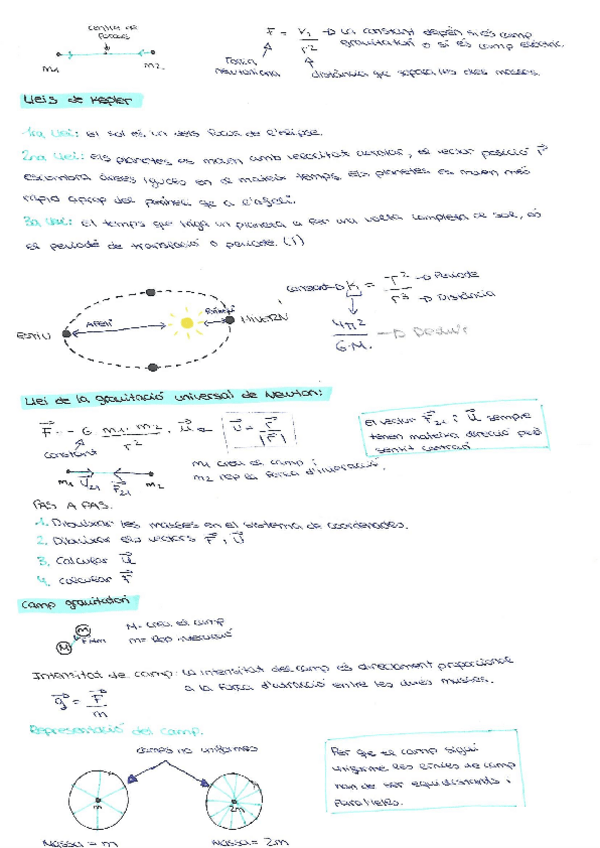 F = K₁ / r² → La constant depèn si és camp
gravitatori o si és camp elèctric.
m1 m2
Força
newtoniana
distància que separa les dues masses
Lleis de Kepler
1ra Llei: El sol és un dels focus de l'el·lipse.
2na Llei: Els planetes es mouen amb velocitat areolar, el vector posició r⃗
escombra àrees iguals en el mateix temps. Els planetes es mouen més
ràpid aprop del periheli que a l'afeli.
3a Llei: El temps que triga un planeta a fer una volta completa al sol, és
el període de translació o període. (T)
constant → K₁ = T² → Període
r³ → Distància
4π²
G·M. → Deduir
ESTIU
Afeli
Periheli
HIVERN
Llei de la gravitació universal de Newton:
F⃗ = - G m1 · m2 / r² · u⃗
u⃗ = r⃗ / |r⃗|
constant
El vector F⃗21 i u⃗ sempre
tenen mateixa direcció però
sentit contrari
m1 u⃗21 F⃗21 m2
m1 crea el camp i
m2 rep la força d'
PAS A PAS.
1. Dibuixar les masses en el sistema de coordenades.
2. Dibuixar els vectors F⃗ i u⃗
3. Calcular u⃗
4. Calcular F⃗
Camp gravitatori
M
M
M- Crea el camp
m= Rep
Intensitat de camp: La intensitat del camp és directament proporcional
a la força d'atracció entre les dues masses.
g⃗ = F⃗ / m
Representació del camp.
camps no uniformes
Per que el camp sigui
uniforme les línies de camp
han de ser equidistants i
paral·leles.
m
2m
Massa = m
Massa = 2m